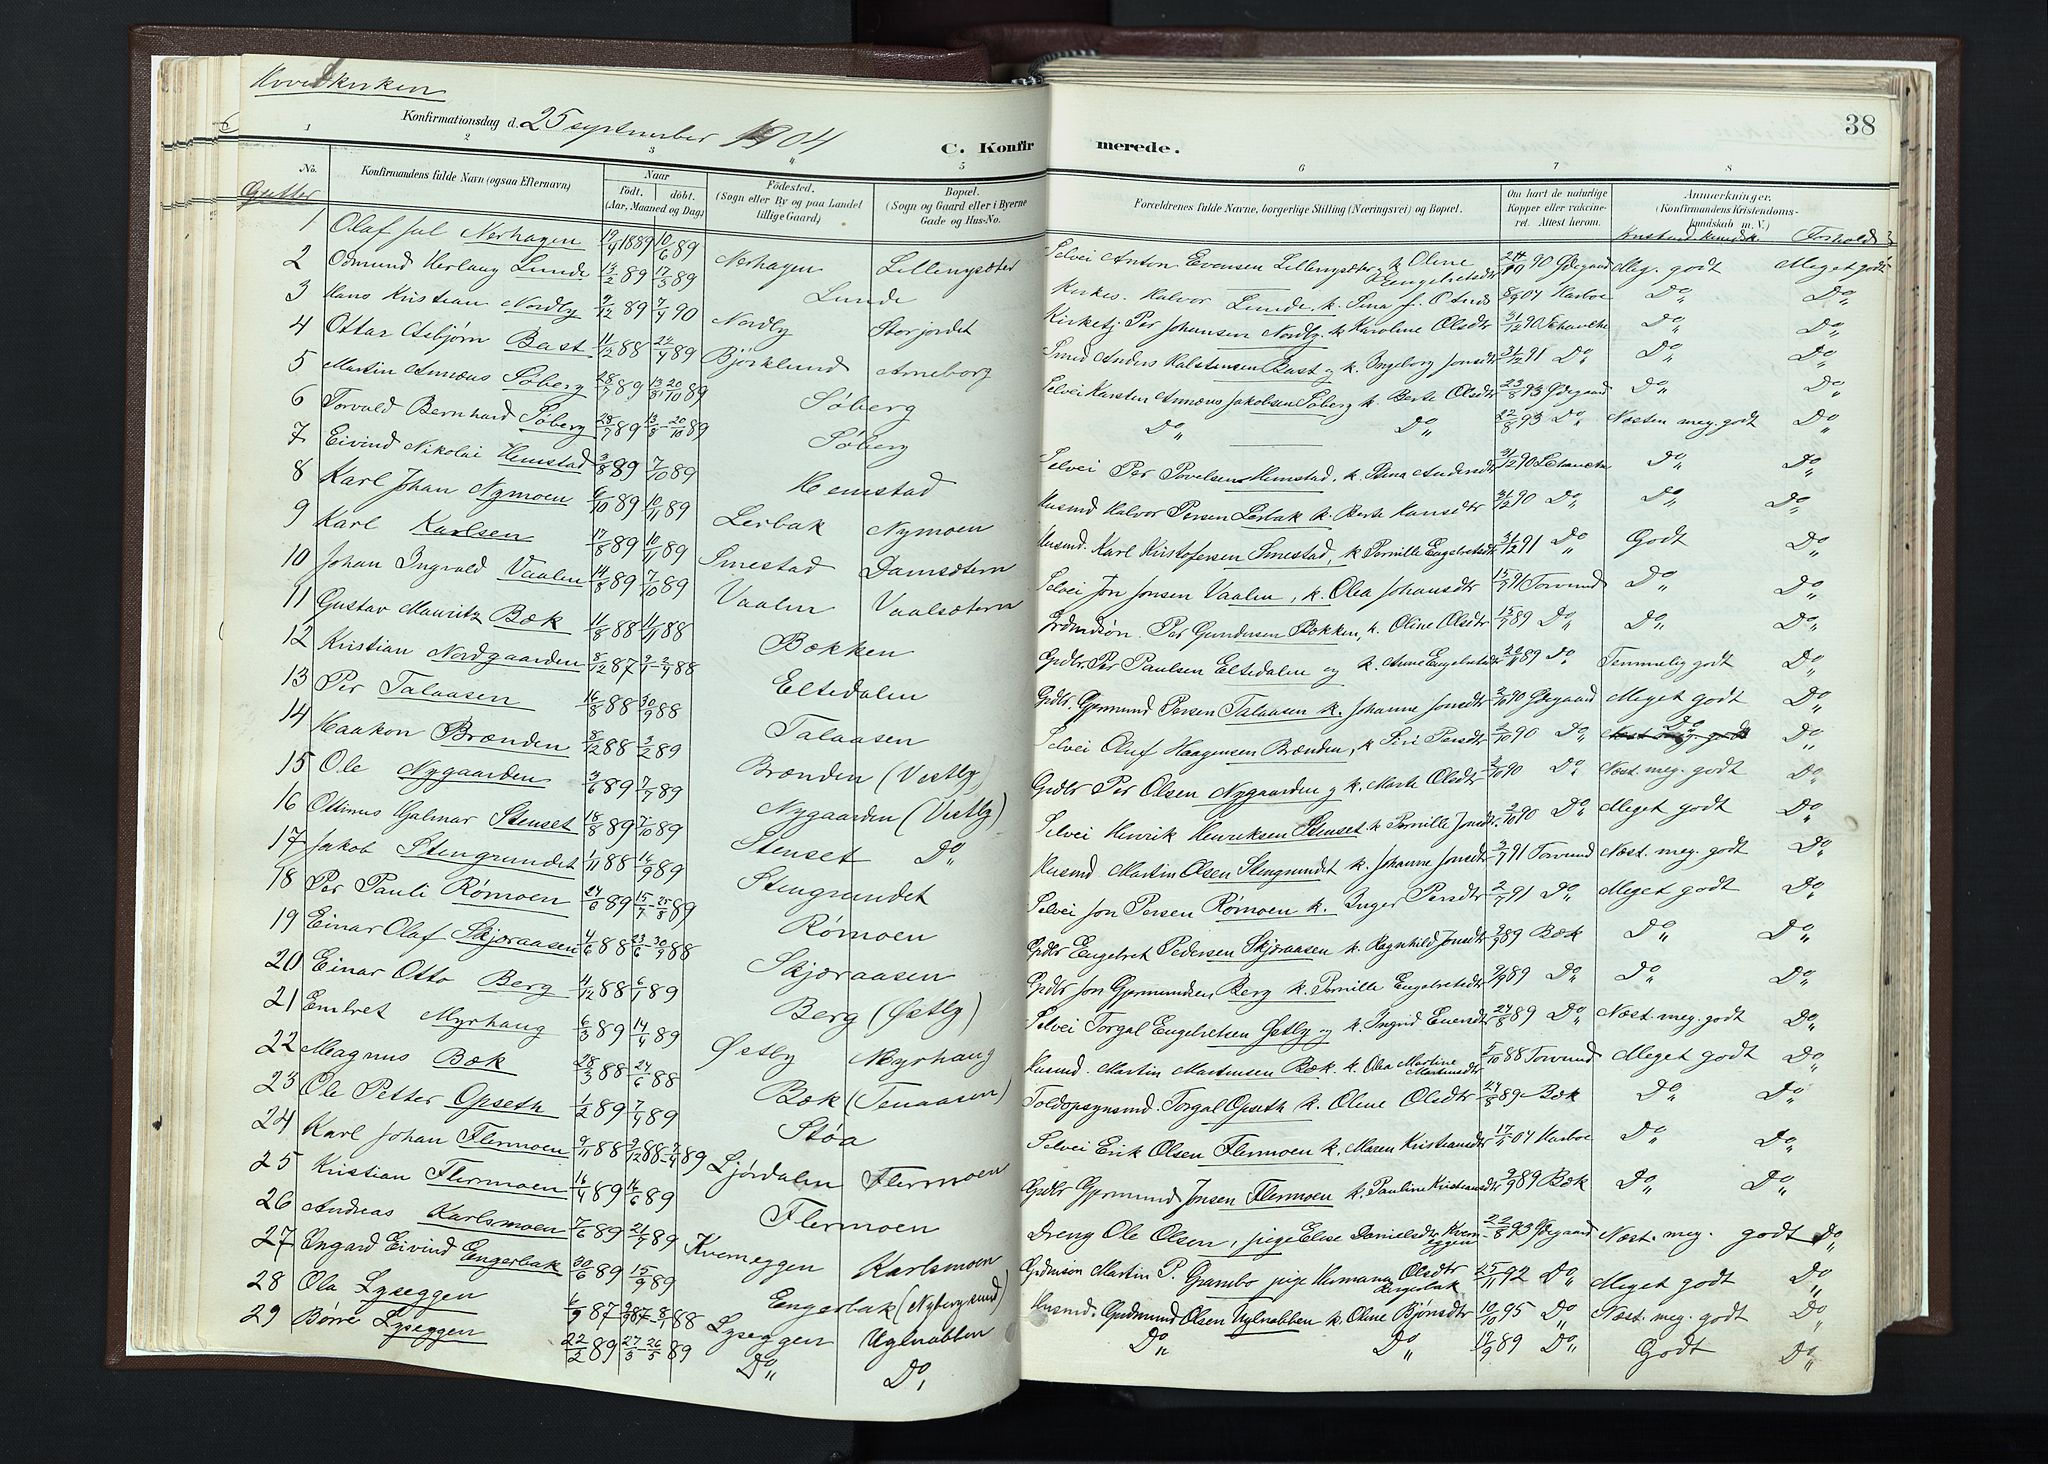 Hovedkirken
Konfirmationsdag d. 25 september 1904
C. Konfirmerede.
38
1 2 3 4 5 6 7 8
No.
Konfirmandens fulde Navn (ogsaa Efternavn)
Naar
født. døbt.
(Aar, Maaned og Dag)
Fødested.
(Sogn eller By og paa Landet tillige Gaard)
Bopæl.
(Sogn og Gaard eller i Byerne Gade og Hus-No.
Forældrenes fulde Navne, borgerlige Stilling (Næringsvei) og Bopæl.
Om havt de naturlige Kopper eller vakcineret. Attest herom.
Anmærkninger.
(Konfirmandens Kristendomskundskab m. V.)
Forhold
Gutter
1 Olaf Jul Nerhagen 19/4 1889 10/6 89 Nerhagen Lillenysæter Selvei Anton Evensen Lillenysæter k. Oline Engelretsdtr 90 Ødegaard Meg. godt Meget godt
2 Odmund Herlaug Lunde 13/2 89 17/3 89 Lunde Kirkes. Halvor Lunde, k. 04 Harboe Do Do
3 Hans Kristian Nordby 9/12 89 7/4 90 Nordby Storjordet Kirketj Per Johansen Nordby k Karoline Olsdtr 31/12 90 Schanche Do Do
4 Ottar Asbjørn Bast 11/12 88 22/4 89 Bjørklund Arneborg Smed Anders Halstensen Bast og k. Ingeborg Jonsdtr 31/12 91 Do Do Do
5 Martin Annæus Søberg 28/7 89 13/8-20/10 89 Søberg Selvei Karsten Annæus Jakobsen Søberg k. Berte Olsdtr 23/8 93 Ødegaard Do Do
6 Torvald Bernhard Søberg 28/7 89 13/8-20/10 89 Søberg Do Do 22/8 93 Do Næsten meg. godt Do
7 Eivind Nikolai Hemstad 3/8 89 7/10 89 Hemstad Selvei Per Povelsen Hemstad, k. 31/12 90 Schanche Do Do
8 Karl Johan Nymoen 6/10 89 10/11 89 Lerbak Nymoen Husmd Halvor Persen Lerbak k. Berte Hansdtr 31/12 90 Do Do Do
9 Karl Karlsen 17/8 89 10/11 89 Smestad Damsætern Husmd. Karl Kristofersen Smestad, k Pernille Engelretsdtr 31/12 91 Do Godt Do
10 Johan Ingvald Vaalen 14/8 89 7/10 89 Vaalen Vaalsætern Selvei Jon Jonsen Vaalen, k. Olea Johansdtr 15/7 91 Torvund Do Do
11 Gustav Mauritz Bæk 11/8 88 11/11 88 Bækken Grdmdsøn. Per Gundersen Bækken, k. Oline Olsdtr 15/7 89 Do Do Do
12 Kristian Nordgaarden 8/12 87 2/4 88 Eltsedalen Grdbr Per Paulsen Eltsedalen og k. Anne Engelretsdtr 89 Do Temmelig godt Do
13 Per Talaasen 16/8 88 30/9 88 Talaasen Grdbr. Gjermund Persen Talaasen k. Johanne Jonsdtr 2/10 90 Ødegaard Meget godt Do
14 Haakon Brænden 8/12 88 3/2 89 Brænden (Vestby) Selvei Oluf Haagensen Brænden, k Siri Persdtr 2/10 90 Do Do Do
15 Ole Nygaarden 3/6 89 7/7 89 Nygaarden (Vestby) Grdbr Per Olsen Nygaarden og k. Marte Olsdtr 2/10 90 Do Næst. meg. godt Do
16 Ottinus Hjalmar Stenset 18/8 89 7/10 89 Stenset Do Selvei Henrik Henriksen Stenset k Pernille Jonsdtr 2/10 90 Do Meget godt Do
17 Jakob Stengrundet 1/11 88 16/9 89 Stengrundet Husmd Martin Olsen Stengrundet k. Johanne Jonsdtr 2/7 91 Torvund Næst. meg. godt Do
18 Per Pauli Rømoen 24/6 89 15/7-25/8 89 Rømoen Selvei Jon Persen Rømoen k. Inger Persdtr 2/7 91 Do Meget godt Do
19 Einar Olaf Skjæraasen 4/6 88 23/6-30/9 88 Skjæraasen Grdbr Engelret Pedersen Skjæraasen k. Ragnhild Jonsdtr 2/9 89 Bæk Do Do
20 Einar Otto Berg 4/12 88 6/1 89 Berg (Østby) Grdbr Jon Gjermundsen Berg k. Pernille Engelretsdtr 9/9 89 Do Do Do
21 Embret Myrhaug 6/3 89 14/4 89 Østby Myrhaug Selvei Torgal Engelretsen Østby og k. Ingrid Evensdtr 27/8 89 Do Næst. meg. godt Do
22 Magnus Bæk 28/3 88 24/6 88 Bæk (Tenaasen) Husmd. Martin Martensen Bæk. k. Olea Martine Martinsdtr 5/10 88 Torvund Meget godt Do
23 Ole Petter Opseth 1/2 89 7/4 89 Støa Toldopsynsmd. Torgal Opseth k. Oline Olsdtr 27/8 89 Bæk Do Do
24 Karl Johan Flermoen 9/11 88 9/12 88-7/4 89 Ljørdalen Flermoen Selvei Erik Olsen Flermoen k. Maren Kristiansdtr 04 Harboe Do Do
25 Kristian Flermoen 16/4 89 16/6 89 Flermoen Grdbr Gjermund Jonsen Flermoen k. Pauline Kristiansdtr 2/9 89 Bæk Do Do
26 Andreas Karlsmoen 7/6 89 21/7 89 Kvernæggen Karlsmoen Dreng Ole Olsen, pige Elise Danielsdtr Kvernæggen 22/8 93 Ødegaard Næst. meg. godt Do
27 Ingard Eivind Engerbak 30/6 89 15/9 89 Engerbak (Nybergsund) Grdmdsøn Martin P. Grambo pige Hermana Olsdtr Engerbak 25/11 92 Do Meget godt Do
28 Ola Lyseggen 87 88 Lyseggen Uglnabben Husmd. Gudmund Olsen Uglnabben k. Oline Bjønsdtr 10/10 95 Do Næst. meg. godt Do
29 Børre Lyseggen 22/2 89 27/3-26/5 89 Do Do Do Do 17/9 89 Do Godt Do